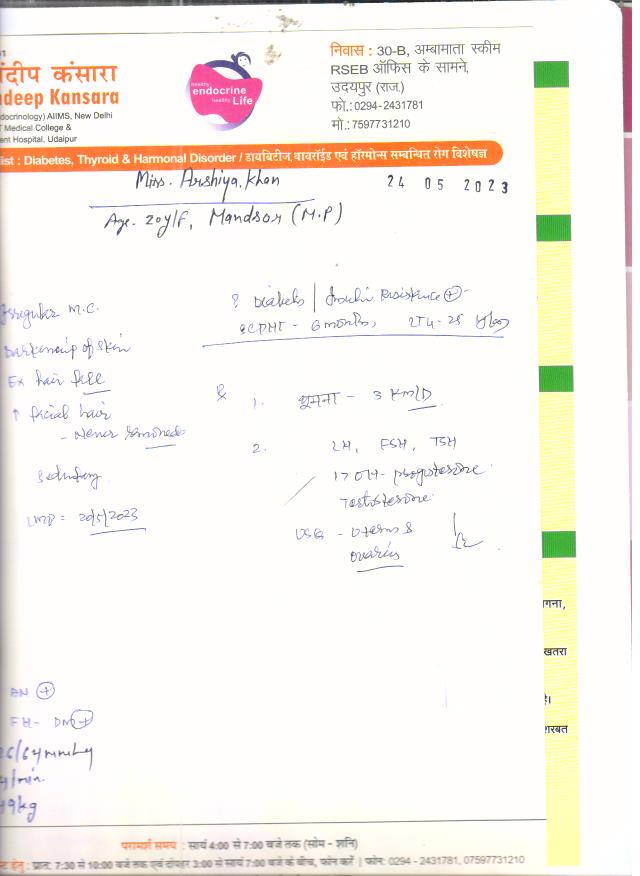 निवास : 30-B, अम्बामाता स्कीम
RSEB ऑफिस के सामने,
उदयपुर (राज.)
फो.:0294-2431781
मो.:7597731210
ंदीप कंसारा
ndeep Kansara
docrinology) AIIMS, New Delhi
Medical College &
ent Hospital, Udaipur
healthy
endocrine
healthy Life
ist : Diabetes, Thyroid & Harmonal Disorder / डायबिटीज, थायरॉईड एवं हॉरमोन्स सम्बन्धित रोग विशेषज्ञ
Miss. Arshiya khan
24 05 2023
Age. 20y/F, Mandsor (M.P)
? Diabetes / Insulin Resistence +
6 months,
M.C.
Darkening of Skin
Ex hair fall
↑ facial hair
- Never
LMP = 20/5/2023
1. घूमना - 3 KM/D
2. LH, FSH, TSH
17 OH- progesterone
Testosterone
USG - Uterus &
Ovaries
AN +
FH- DM +
/min
9 kg
गना,
खतरा
है।
शरबत
परामर्श समय : सायं 4:00 से 7:00 बजे तक (सोम - शनि)
हेतु : प्रातः 7:30 से 10:00 बजे तक एवं दोपहर 3:00 से सायं 7:00 बजे के बीच, फोन करें | फोन: 0294 - 2431781, 07597731210